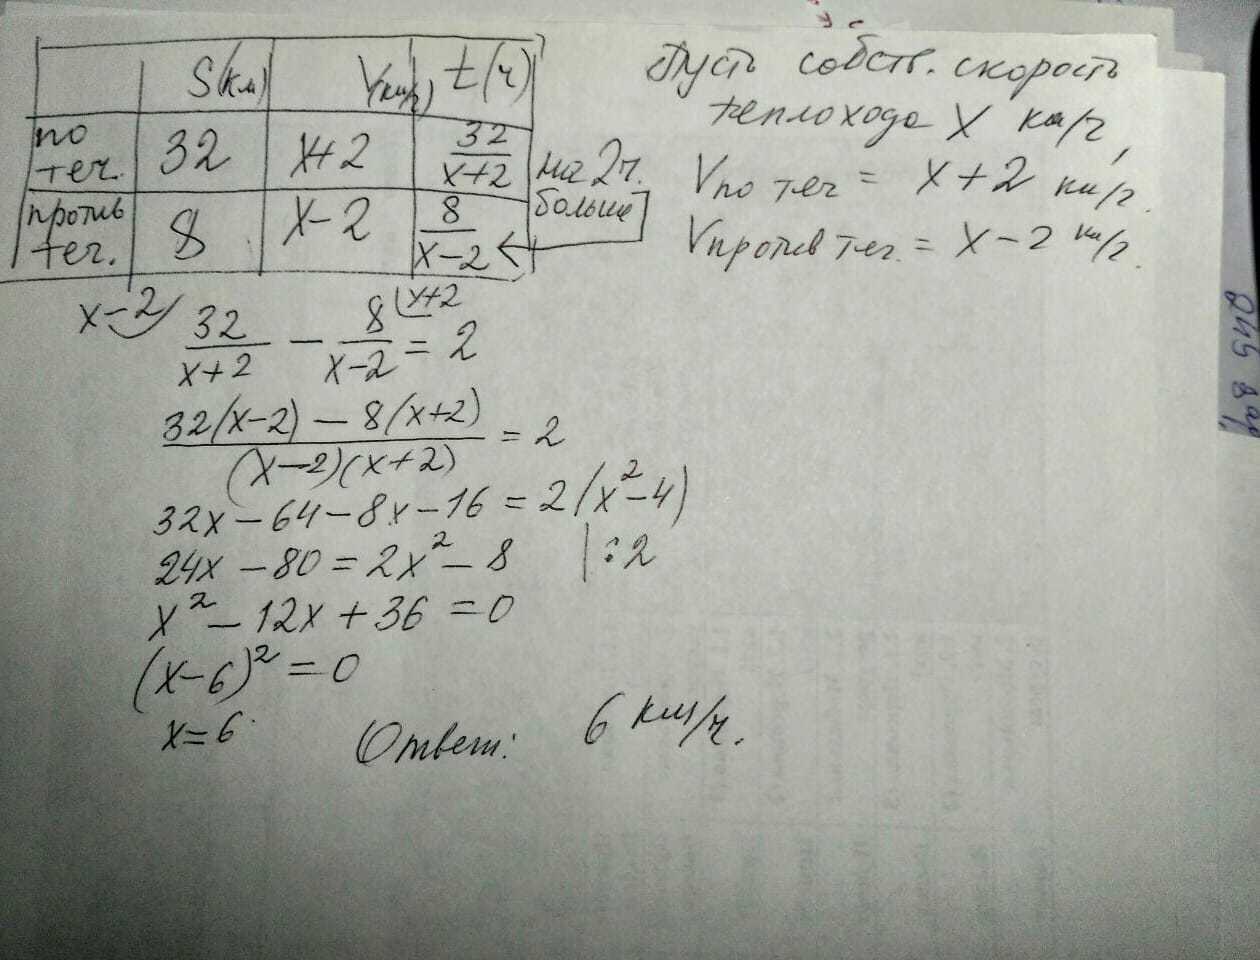 S(км) V(км/ч) t(ч)
по теч. 32 x+2 32/(x+2) на 2ч. больше
против теч. 8 x-2 8/(x-2)
Пусть собств. скорость
теплохода X км/ч,
Vпо теч = x+2 км/ч.
Vпротив теч. = x-2 км/ч.
x-2) 32/(x+2) - 8/(x-2) (x+2 = 2
(32(x-2) - 8(x+2))/((x-2)(x+2)) = 2
32x-64-8x-16 = 2(x²-4)
24x-80 = 2x²-8 |:2
x²-12x+36=0
(x-6)²=0
x=6. Ответ: 6 км/ч.